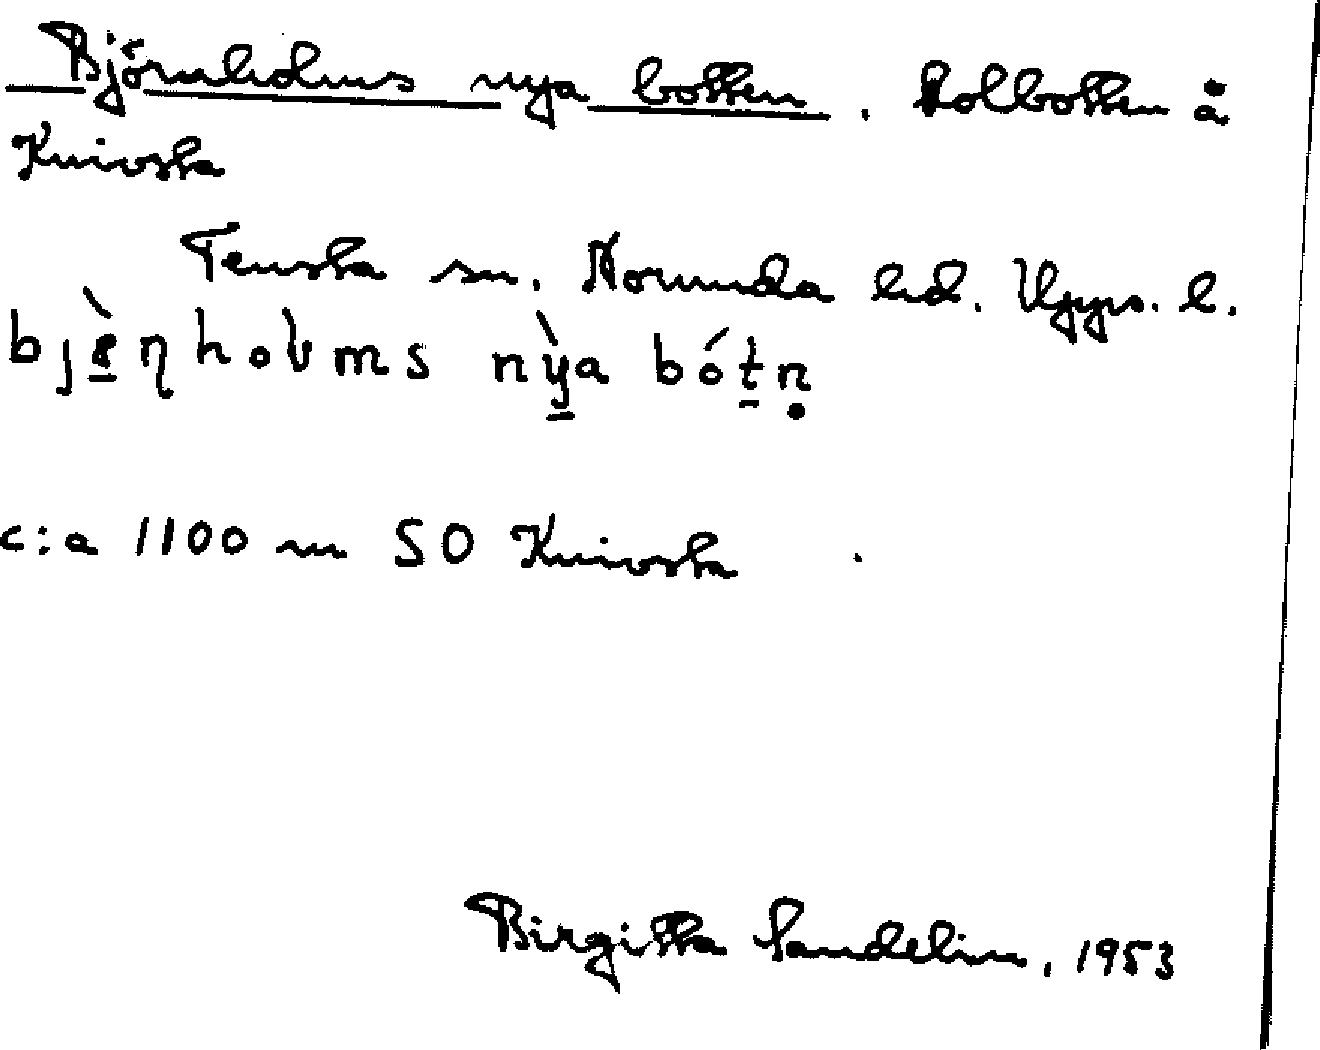 Björnholms nya botten. Kolbotten å
Knivsta
Tensta sn. Norunda hd. Upps. l.
bjɛ̠̀ɳhoɫms nỳ̠a bót̠ṇ
c:a 1100 m SO Knivsta
Birgitta Sandelin, 1953